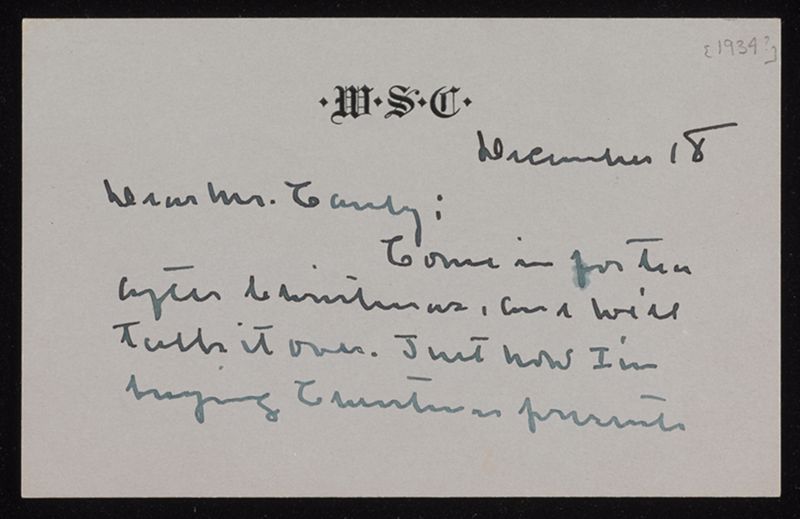 [1934?]
·W·S·C·
December 18
Dear Mr. Canby:
Come in for tea
after Christmas, and we'll
talk it over. Just now I'm
buying Christmas presents